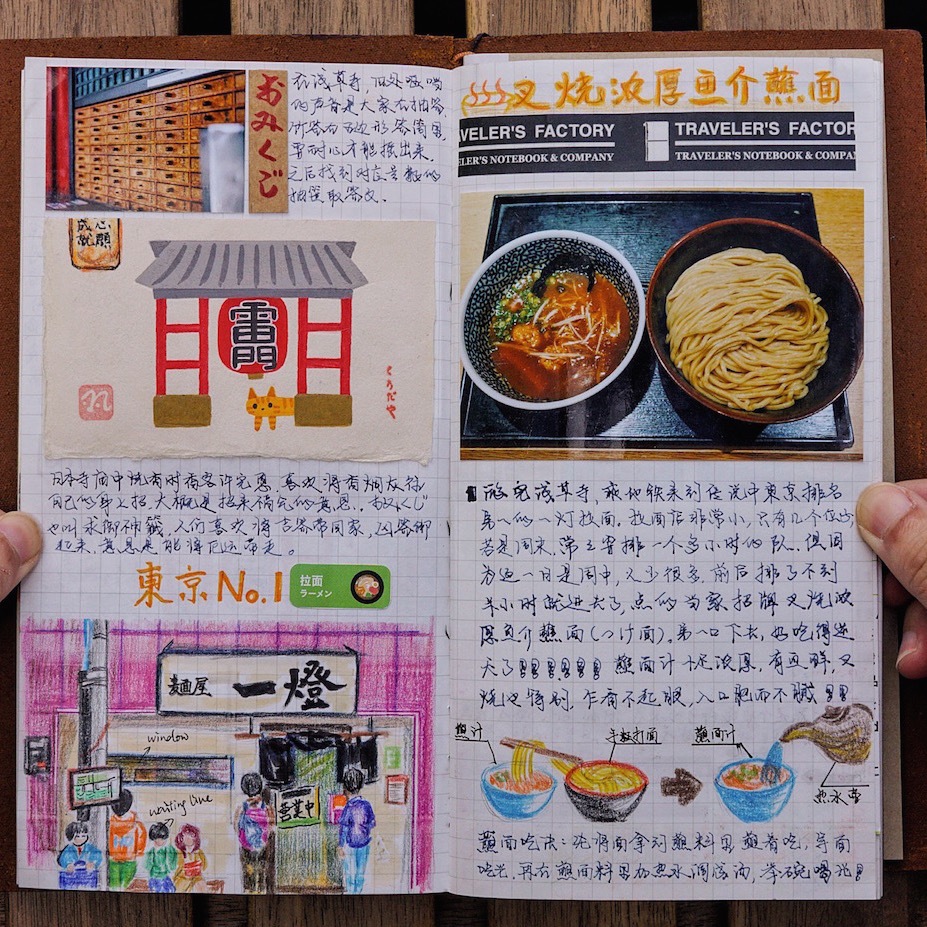 おみくじ
在浅草寺,四处
的声音是大家在抽签,
签筒里,
要耐心才能摇出来.
之后找到对应号数的
抽屉取签文.
心願
成就
雷門
くろだや
日本寺庙中烧香时香客许完愿,喜欢将香烟灰往
自己的身上招,大概是招来福气的意思. おみくじ
也叫求御神籤,人们喜欢将吉签带回家,凶签绑
起来,意思是能将厄运带走。
東京No.1
拉面
ラーメン
麺屋 一燈
window
waiting line
営業中
叉烧浓厚鱼介蘸面
VELER'S FACTORY TRAVELER'S FACTOR
ELER'S NOTEBOOK & COMPANY TRAVELER'S NOTEBOOK & COMPA
游完浅草寺,就地铁来到传说中東京排名
第一的一灯拉面。拉面店非常小,只有几个位子,
若是周末,常常需排一个多小时的队.但因
为这一日是周中,人少很多,前后排了不到
半小时就进去了,点的当家招牌叉烧浓
厚鱼介蘸面(つけ面)。第一口下去,好吃得逆
天了!!!!!! 蘸面汁十足浓厚,有鱼鲜,叉
烧也特别,乍看不起眼,入口肥而不腻!!
手打面
蘸面汁
热水壶
蘸面吃法:先将面拿到蘸料里蘸着吃,等面
吃光,再在蘸面料里加热水调成汤,拿碗喝光!